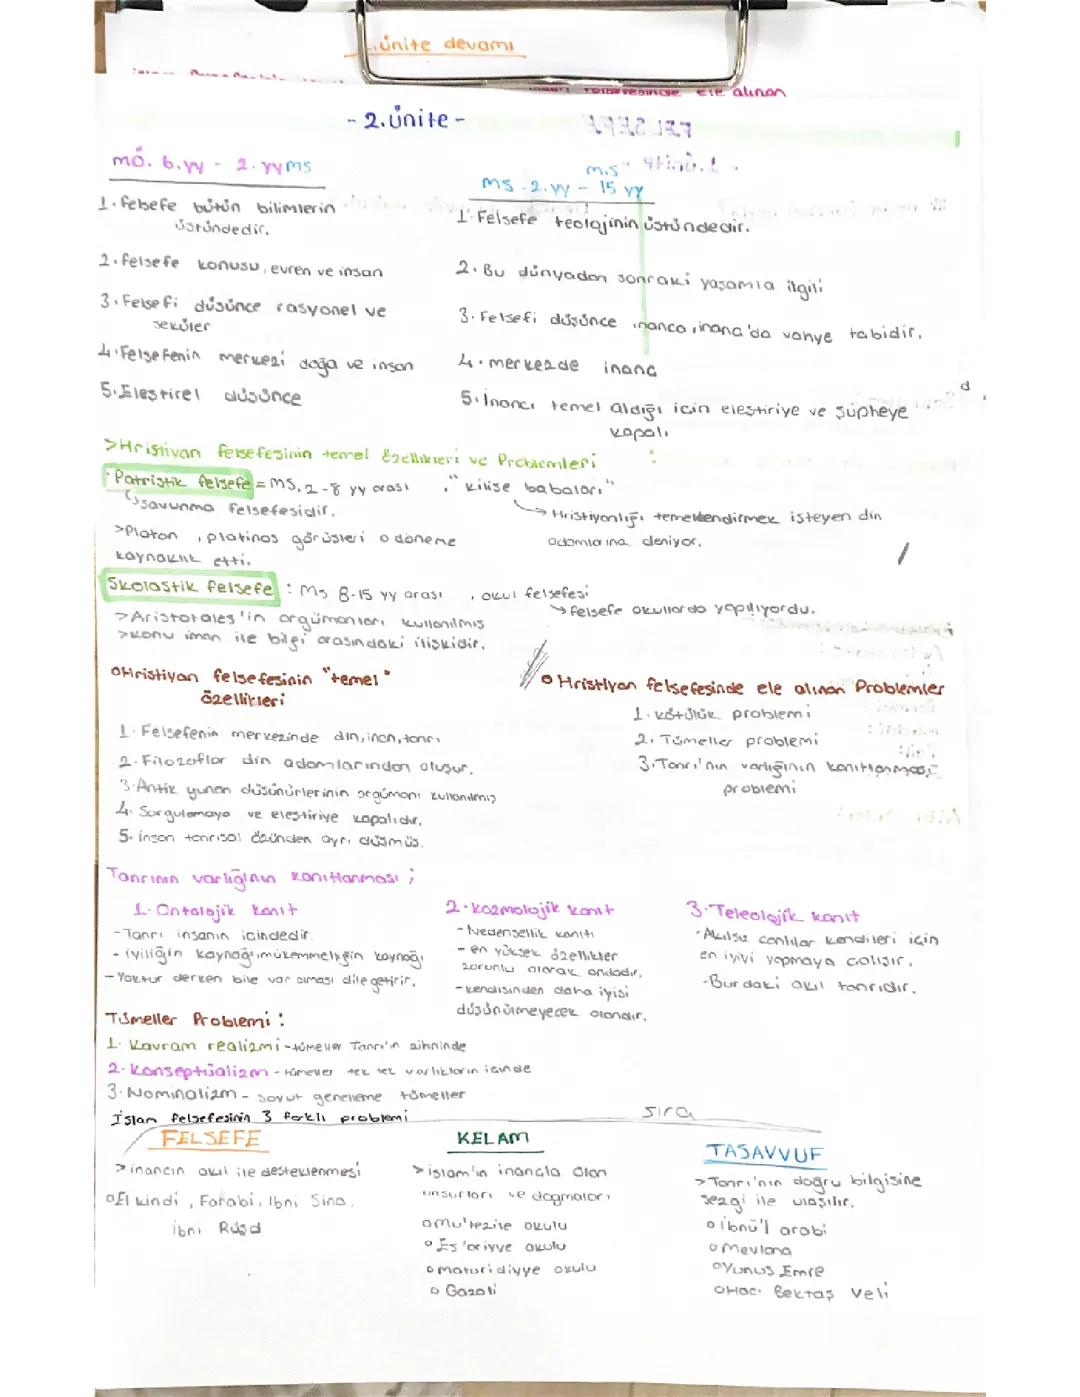 ünite devamı
ele alınan
- 2.ünite -
mö. 6.yy - 2. yy ms
1. felsefe bütün bilimlerin
üstündedir.
2. felsefe konusu, evren ve insan
3. Felsefi düşünce rasyonel ve
seküler
4. Felsefenin merkezi doğa ve insan
5. Eleştirel düşünce
m.s
ms. 2. yy - 15 yy
1. Felsefe teolojinin üstündedir.
2. Bu dünyadan sonraki yaşamla ilgili
3. Felsefi düşünce inanca, inanç'da vahye tabidir.
4. merkezde inanç
5. İnancı temel aldığı için eleştiriye ve şüpheye
kapalı
>Hristiyan felsefesinin temel özellikleri ve Problemleri :
Patristik felsefe = MS. 2-8 yy arası , "kilise babaları"
savunma felsefesidir.
→ Hristiyanlığı temellendirmek isteyen din
adamlarına deniyor.
>Platon , platinos görüşleri o döneme
kaynaklık etti.
Skolastik felsefe : Ms 8-15 yy arası , okul felsefesi
→ felsefe okullarda yapılıyordu.
>Aristotales'in argümanları kullanılmış
>konu iman ile bilgi arasındaki ilişkidir.
o Hristiyan felsefesinin "temel"
özellikleri
1. Felsefenin merkezinde din, inan, tanrı
2. Filozoflar din adamlarından oluşur.
3. Antik yunan düşünürlerinin argümanı kullanılmış
4. Sorgulamaya ve eleştiriye kapalıdır.
5. insan tanrısal özünden ayrı düşmüş.
o Hristiyan felsefesinde ele alınan Problemler
1. kötülük problemi
2. Tümeller problemi
3. Tanrı'nın varlığının kanıtlanması
problemi
Tanrının varlığının kanıtlanması ;
1. Ontalojik kanıt
- Tanrı insanın içindedir.
- iyiliğin kaynağı, mükemmelliğin kaynağı
- Yoktur derken bile var olması dile getirir.
2. kozmolojik kanıt
- Nedensellik kanıtı
- en yüksek özellikler
zorunlu olarak ondadır.
- kendisinden daha iyisi
düşünülmeyecek olandır.
3. Teleolojik kanıt
- Akılsız canlılar kendileri için
en iyiyi yapmaya çalışır.
- Burdaki akıl tanrıdır.
Tümeller Problemi :
1. Kavram realizmi - tümeller Tanrı'n zihninde
2. Konseptüalizm - tümeller tek tek varlıkların içinde
3. Nominalizm - soyut genelleme tümeller
İslam felsefesinin 3 farklı problemi
sıra
FELSEFE
> inancın akıl ile desteklenmesi
o El kindi , Farabi, Ibni Sina,
ibni Rüşd
KELAM
> islam'ın inançla olan
unsurları ve dogmaları
o Mu'tezile okulu
o Eş'ariyye okulu
o maturidiyye okulu
o Gazali
TASAVVUF
> Tanrı'nın doğru bilgisine
sezgi ile ulaşılır.
o ibnü'l arabi
o Mevlana
o Yunus Emre
o Hacı Bektaş Veli